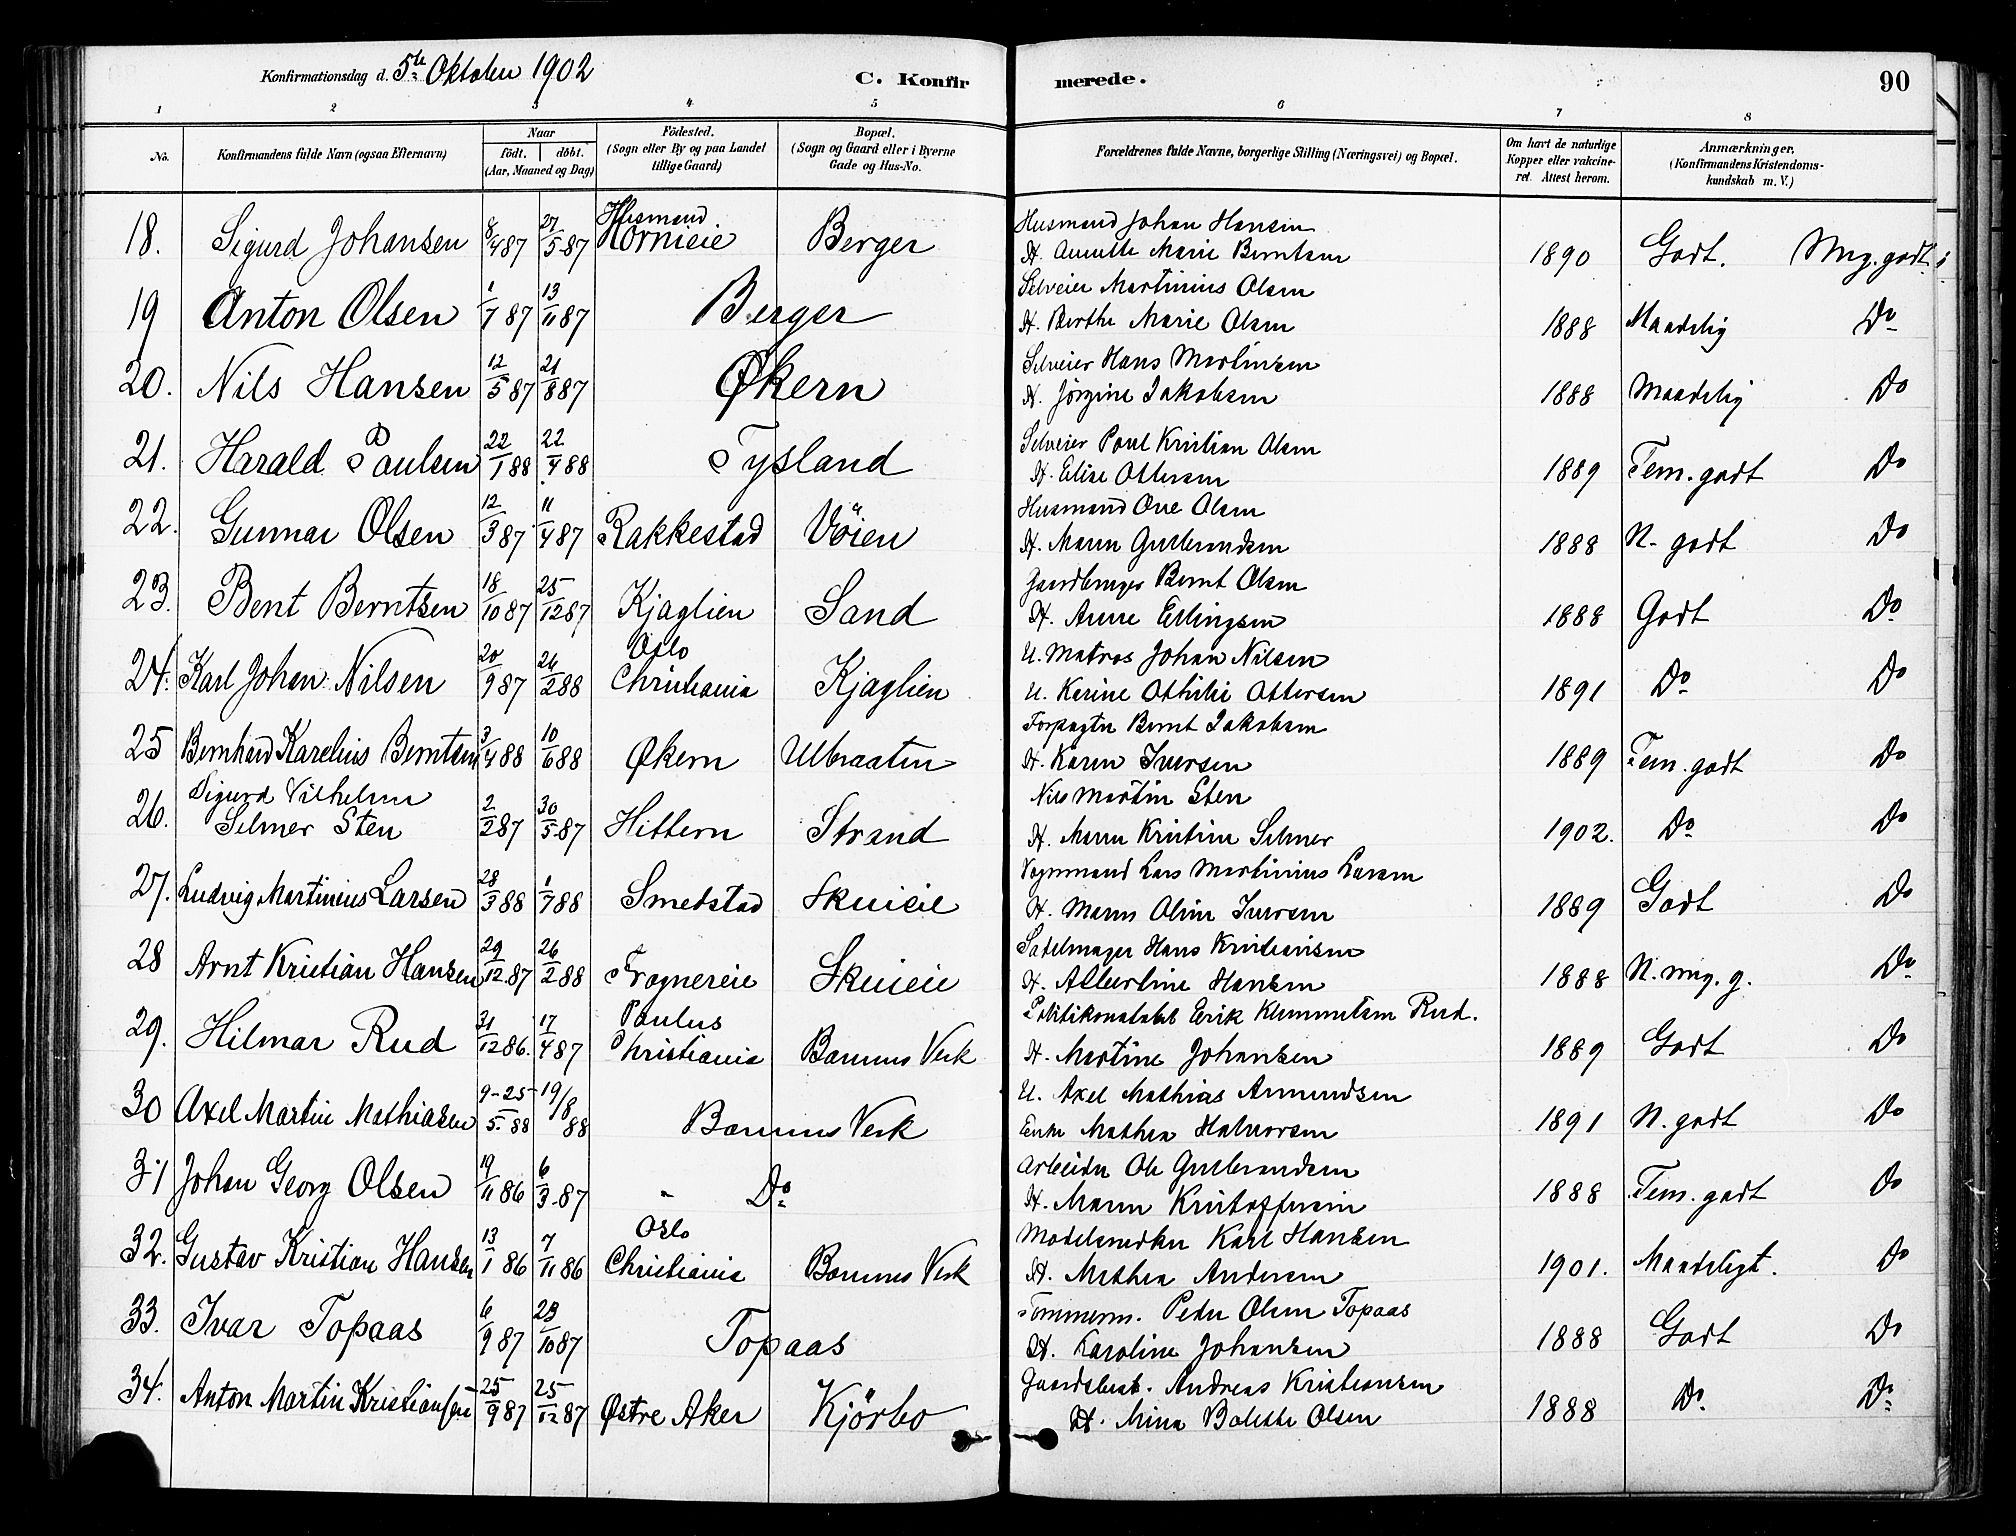 Konfirmationsdag d. 5te Oktober 1902 C. Konfirmerede. 90
1 2 3 4 5 6 7 8
No. Konfirmandens fulde Navn (ogsaa Efternavn) Naar födt. döbt. (Aar, Maaned og Dag) Födested. (Sogn eller By og paa Landet tillige Gaard) Bopæl. (Sogn og Gaard eller i Byerne Gade og Hus-No. Forældrenes fulde Navne, borgerlige Stilling (Næringsvei) og Bopæl. Om havt de naturlige Kopper eller vakcineret. Attest herom. Anmærkninger, (Konfirmandens Kristendomskundskab m. V.)
Husmand Husmand Johan Hansen
18. Sigurd Johansen 8/4 87 27/5 87 Hornieie Berger H. Annette Marie Berntsen 1890 Godt. Mg. godt
Selveier Martinius Olsen
19 Anton Olsen 1/7 87 13/11 87 Berger H. Berthe Marie Olsen 1888 Maadelig Do
Selveier Hans Martinsen
20. Nils Hansen 12/5 87 21/8 87 Økern H. Jörgine Jakobsen 1888 Maadelig Do
Selveier Paul Kristian Olsen
21. Harald Paulsen 22/1 88 22/4 88 Tysland H. Elise Ottersen 1889 Tem. godt Do
Husmand Ove Olsen
22. Gunnar Olsen 12/3 87 11/4 87 Rakkestad Vöien H. Maren Gulbrandsen 1888 N. godt Do
Gaardbruger Bernt Olsen
23. Bent Berntsen 18/10 87 25/12 87 Kjaglien Sand H. Anne Ellingsen 1888 Godt Do
Oslo U. Matros Johan Nilsen
24. Karl Johan Nilsen 20/9 87 26/2 88 Christiania Kjaglien U. Karine Othilie Ottersen 1891 Do Do
Forpagter Bernt Jakobsen
25 Bernhard Karelius Berntsen 3/4 88 10/6 88 Økern Ulbraaten H. Karen Iversen 1889 Tem. godt Do
Sigurd Vilhelm Nils Martin Sten
26. Selmer Sten 2/2 87 30/5 87 Hittern Strand H. Maren Kristine Selmer 1902. Do Do
Vognmand Lars Martinius Larsen
27. Ludvig Martinius Larsen 28/3 88 1/7 88 Smedstad Skuieie H. Maren Oline Iversen 1889 Godt Do
Sadelmager Hans Kristiansen
28 Arnt Kristian Hansen 29/12 87 26/2 88 Frognereie Skuieie H. Albertine Hansen 1888 N. mg. g. Do
Paulus Politikonstabel Erik Klemmetsen Rud.
29. Hilmar Rud 31/12 86. 17/4 87 Christiania Bærums Verk H. Martine Johansen 1889 Godt Do
U. Axel Mathias Amundsen
30 Axel Martin Mathiasen 9-25/5. 88 19/8 88 Bærums Verk Enke Mathea Halvorsen 1891 N. godt Do
Arbeider Ole Gulbrandsen
31 Johan Georg Olsen 19/11 86 6/3 87 " Do H. Maren Kristoffersen 1888 Tem. godt Do
Oslo Modelsnedker Karl Hansen
32. Gustav Kristian Hansen 13/1 86 7/11 86 Christiania Bærums Verk H. Mathea Andersen 1901. Maadeligt. Do
Tömmerm. Peder Olsen Topaas
33. Ivar Topaas 6/9 87 23/10 87 Topaas H. Karoline Johansen 1888 Godt Do
Gaardsbest. Andreas Kristiansen
34. Anton Martin Kristiansen 25/9 87 25/12 87 Østre Aker Kjörbo H. Mina Bolette Olsen 1888 Do. Do